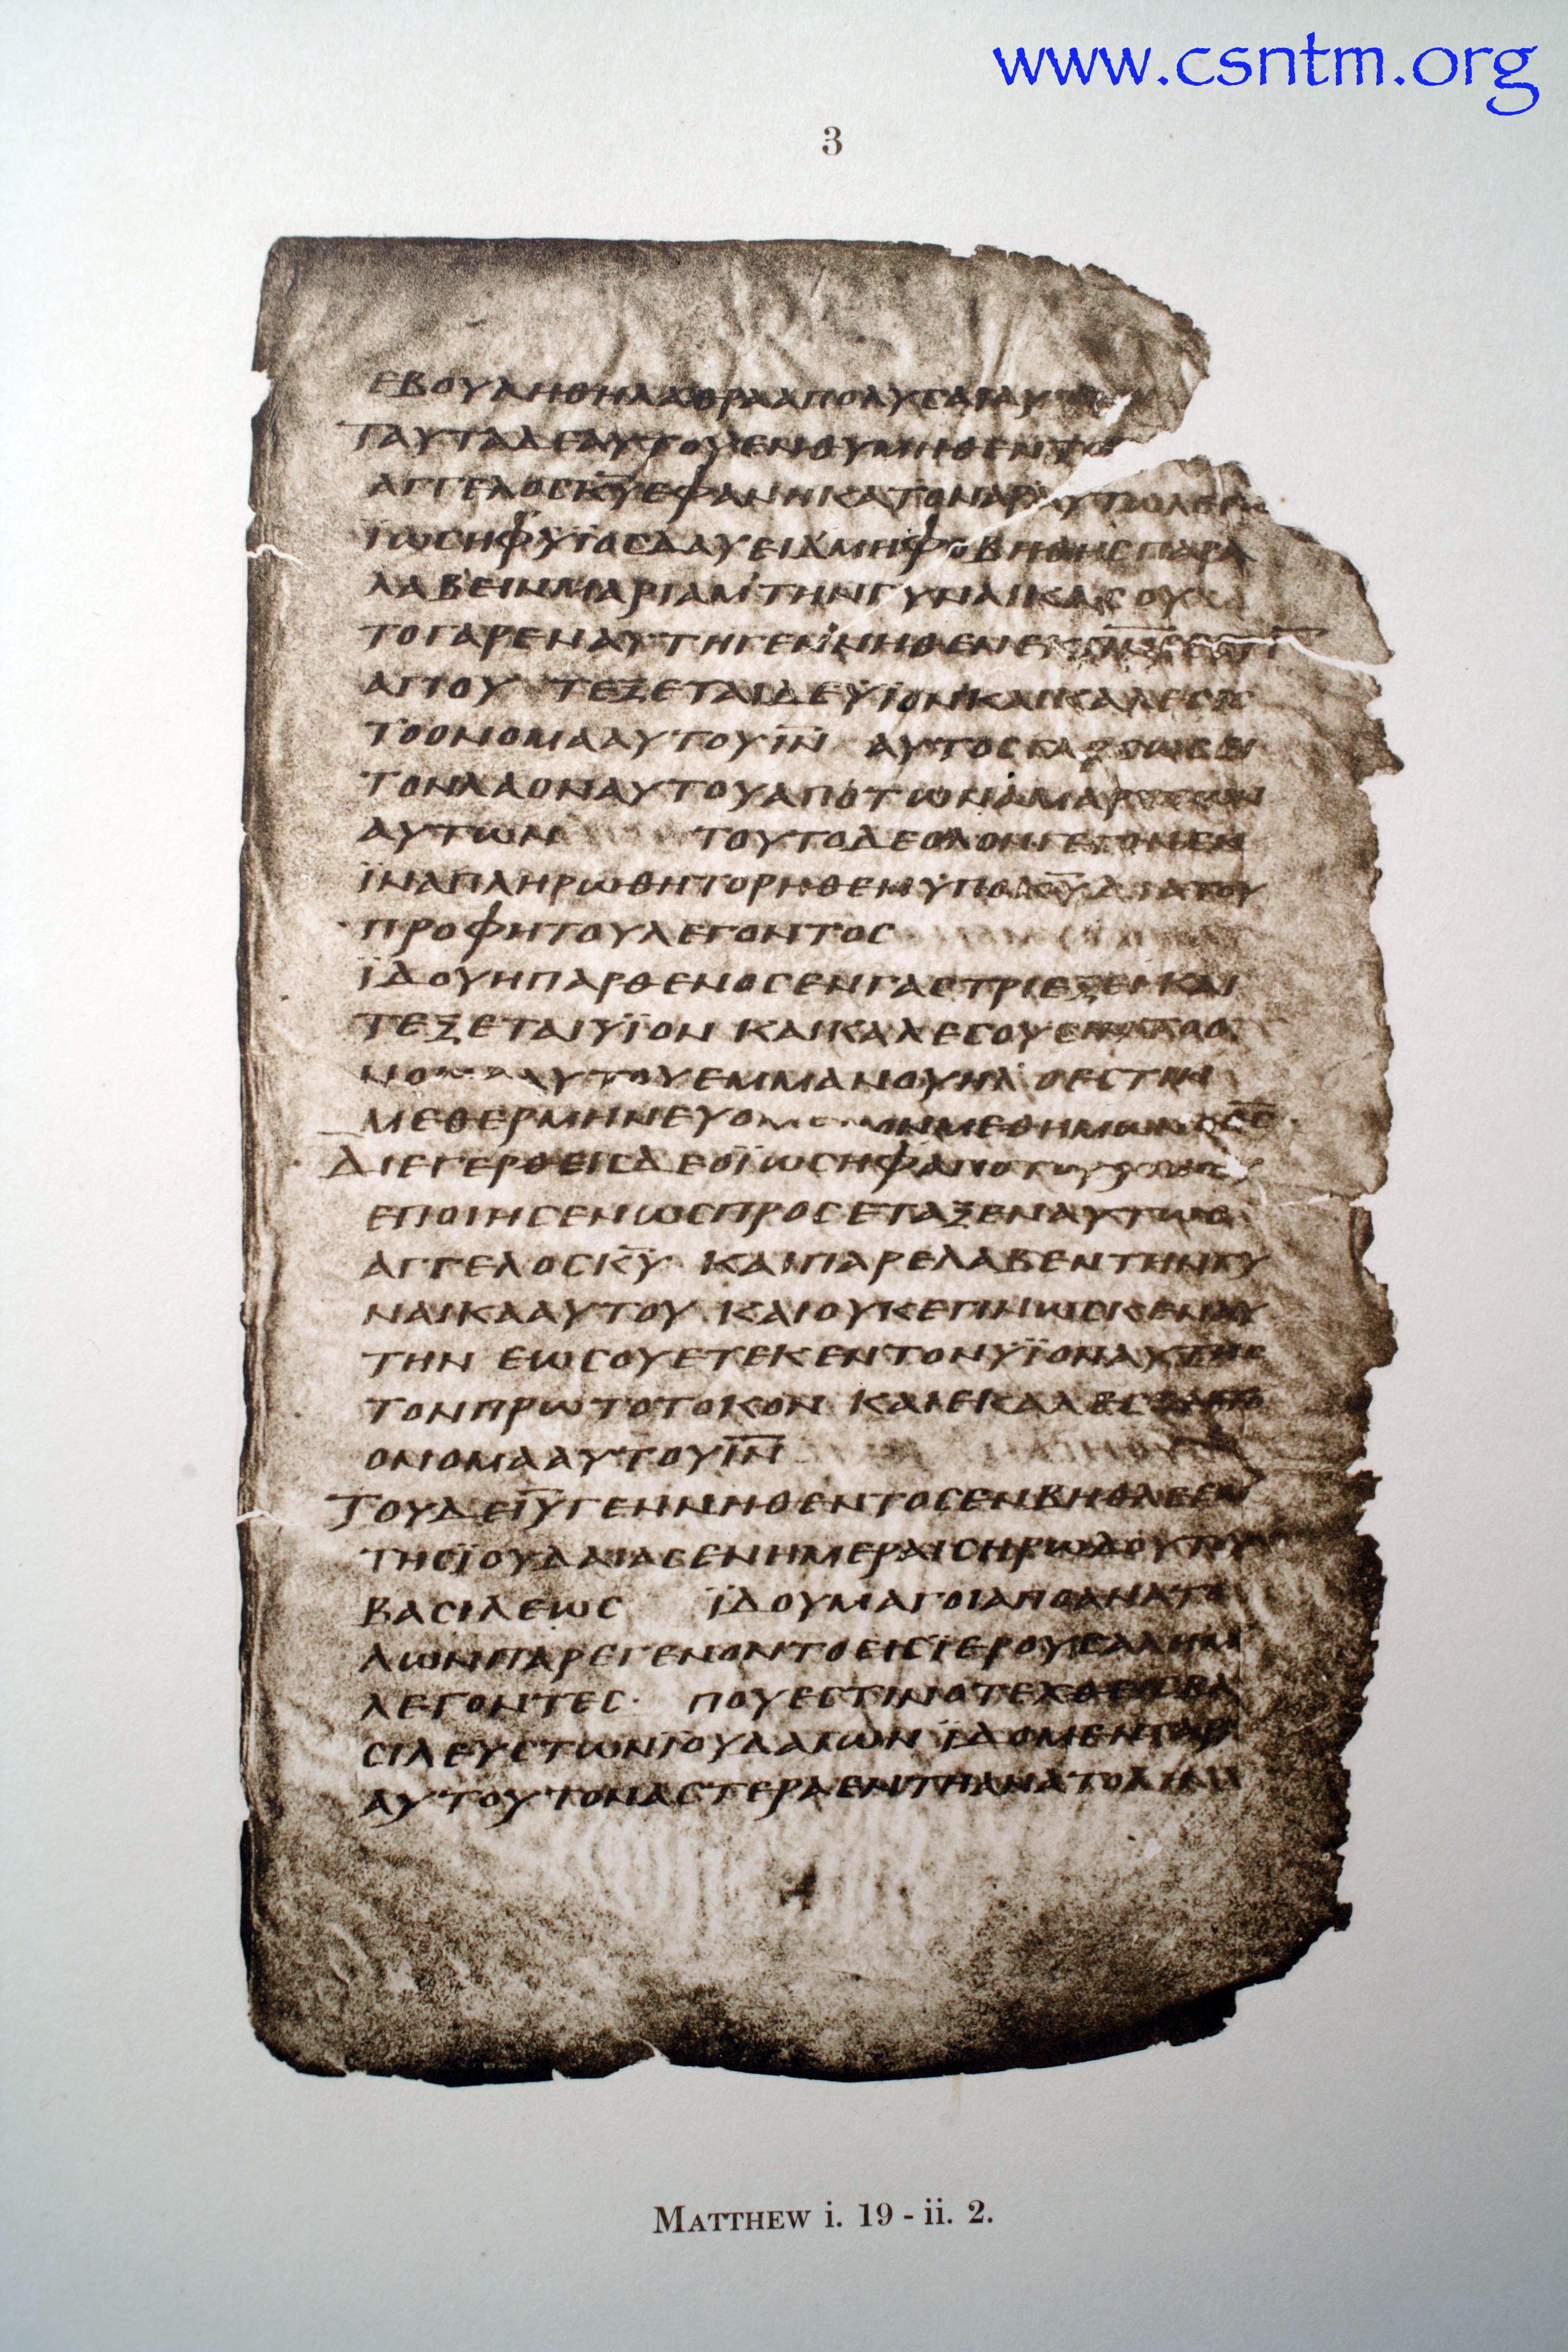 www.csntm.org
3
ΕΒΟΥΛΗΘΗΛΑΘΡΑΑΠΟΛΥϹΑΙΑΥ
ΤΑΥΤΑΔΕΑΥΤΟΥΕΝΘΥΜΗΘΕΝΤΟ
ΑΓΓΕΛΟϹΚ̅Υ̅ΕΦΑΝΗΚΑΤΟΝΑΡΑΥΤΩΛΕΓΩ
ΪΩϹΗΦΥΪΟϹΔΑΥΕΙΔΜΗΦΟΒΗΘΗϹΠΑΡΑ
ΛΑΒΕΙΝΜΑΡΙΑΜΤΗΝΓΥΝΑΙΚΑϹΟΥ
ΤΟΓΑΡΕΝΑΥΤΗΓΕΝΝΗΘΕΝΕΚΠ̅Ν̅Ϲ̅ΕϹΤΙ
ΑΓΙΟΥ ΤΕΞΕΤΑΙΔΕΥΪΟΝΚΑΙΚΑΛΕϹΙϹ
ΤΟΟΝΟΜΑΑΥΤΟΥΙ̅Ν̅ ΑΥΤΟϹΓΑΡϹΩϹΕΙ
ΤΟΝΛΑΟΝΑΥΤΟΥΑΠΟΤΩΝΑΜΑΡΤΙΩΝ
ΑΥΤΩΝ ΤΟΥΤΟΔΕΟΛΟΝΓΕΓΟΝΕΝ
ΪΝΑΠΛΗΡΩΘΗΤΟΡΗΘΕΝΥΠΟΚ̅Υ̅ΔΙΑΤΟΥ
ΠΡΟΦΗΤΟΥΛΕΓΟΝΤΟϹ
ΪΔΟΥΗΠΑΡΘΕΝΟϹΕΝΓΑϹΤΡΙΕΞΕΙΚΑΙ
ΤΕΞΕΤΑΙΥΪΟΝ ΚΑΙΚΑΛΕϹΟΥϹΙΝΤΟΟ
ΝΟΜΑΑΥΤΟΥΕΜΜΑΝΟΥΗΛ ΟΕϹΤΙΝ
ΜΕΘΕΡΜΗΝΕΥΟΜΕΝΟΝΜΕΘΗΜΩΝΟΘ̅Ϲ̅
ΔΙΕΓΕΡΘΕΙϹΔΕΟΪΩϹΗΦΑΠΟΤΟΥΥΠΝΟΥ
ΕΠΟΙΗϹΕΝΩϹΠΡΟϹΕΤΑΞΕΝΑΥΤΩΟ
ΑΓΓΕΛΟϹΚ̅Υ̅ ΚΑΙΠΑΡΕΛΑΒΕΝΤΗΝΓΥ
ΝΑΙΚΑΑΥΤΟΥ ΚΑΙΟΥΚΕΓΙΝΩϹΚΕΝΑΥ
ΤΗΝ ΕΩϹΟΥΕΤΕΚΕΝΤΟΝΥΪΟΝΑΥΤΗϹ
ΤΟΝΠΡΩΤΟΤΟΚΟΝ ΚΑΙΕΚΑΛΕϹΕΝΤΟ
ΟΝΟΜΑΑΥΤΟΥΙ̅Ν̅
ΤΟΥΔΕΙ̅Υ̅ΓΕΝΝΗΘΕΝΤΟϹΕΝΒΗΘΛΕΕΜ
ΤΗϹΪΟΥΔΑΙΑϹΕΝΗΜΕΡΑΙϹΗΡΩΔΟΥΤΟΥ
ΒΑϹΙΛΕΩϹ ΪΔΟΥΜΑΓΟΙΑΠΟΑΝΑΤΟ
ΛΩΝΠΑΡΕΓΕΝΟΝΤΟΕΙϹΪΕΡΟΥϹΑΛΗΜ
ΛΕΓΟΝΤΕϹ· ΠΟΥΕϹΤΙΝΟΤΕΧΘΕΙϹΒΑ
ϹΙΛΕΥϹΤΩΝΪΟΥΔΑΙΩΝ ΪΔΟΜΕΝΓΑΡ
ΑΥΤΟΥΤΟΝΑϹΤΕΡΑΕΝΤΗΑΝΑΤΟΛΗ
MATTHEW i. 19 - ii. 2.